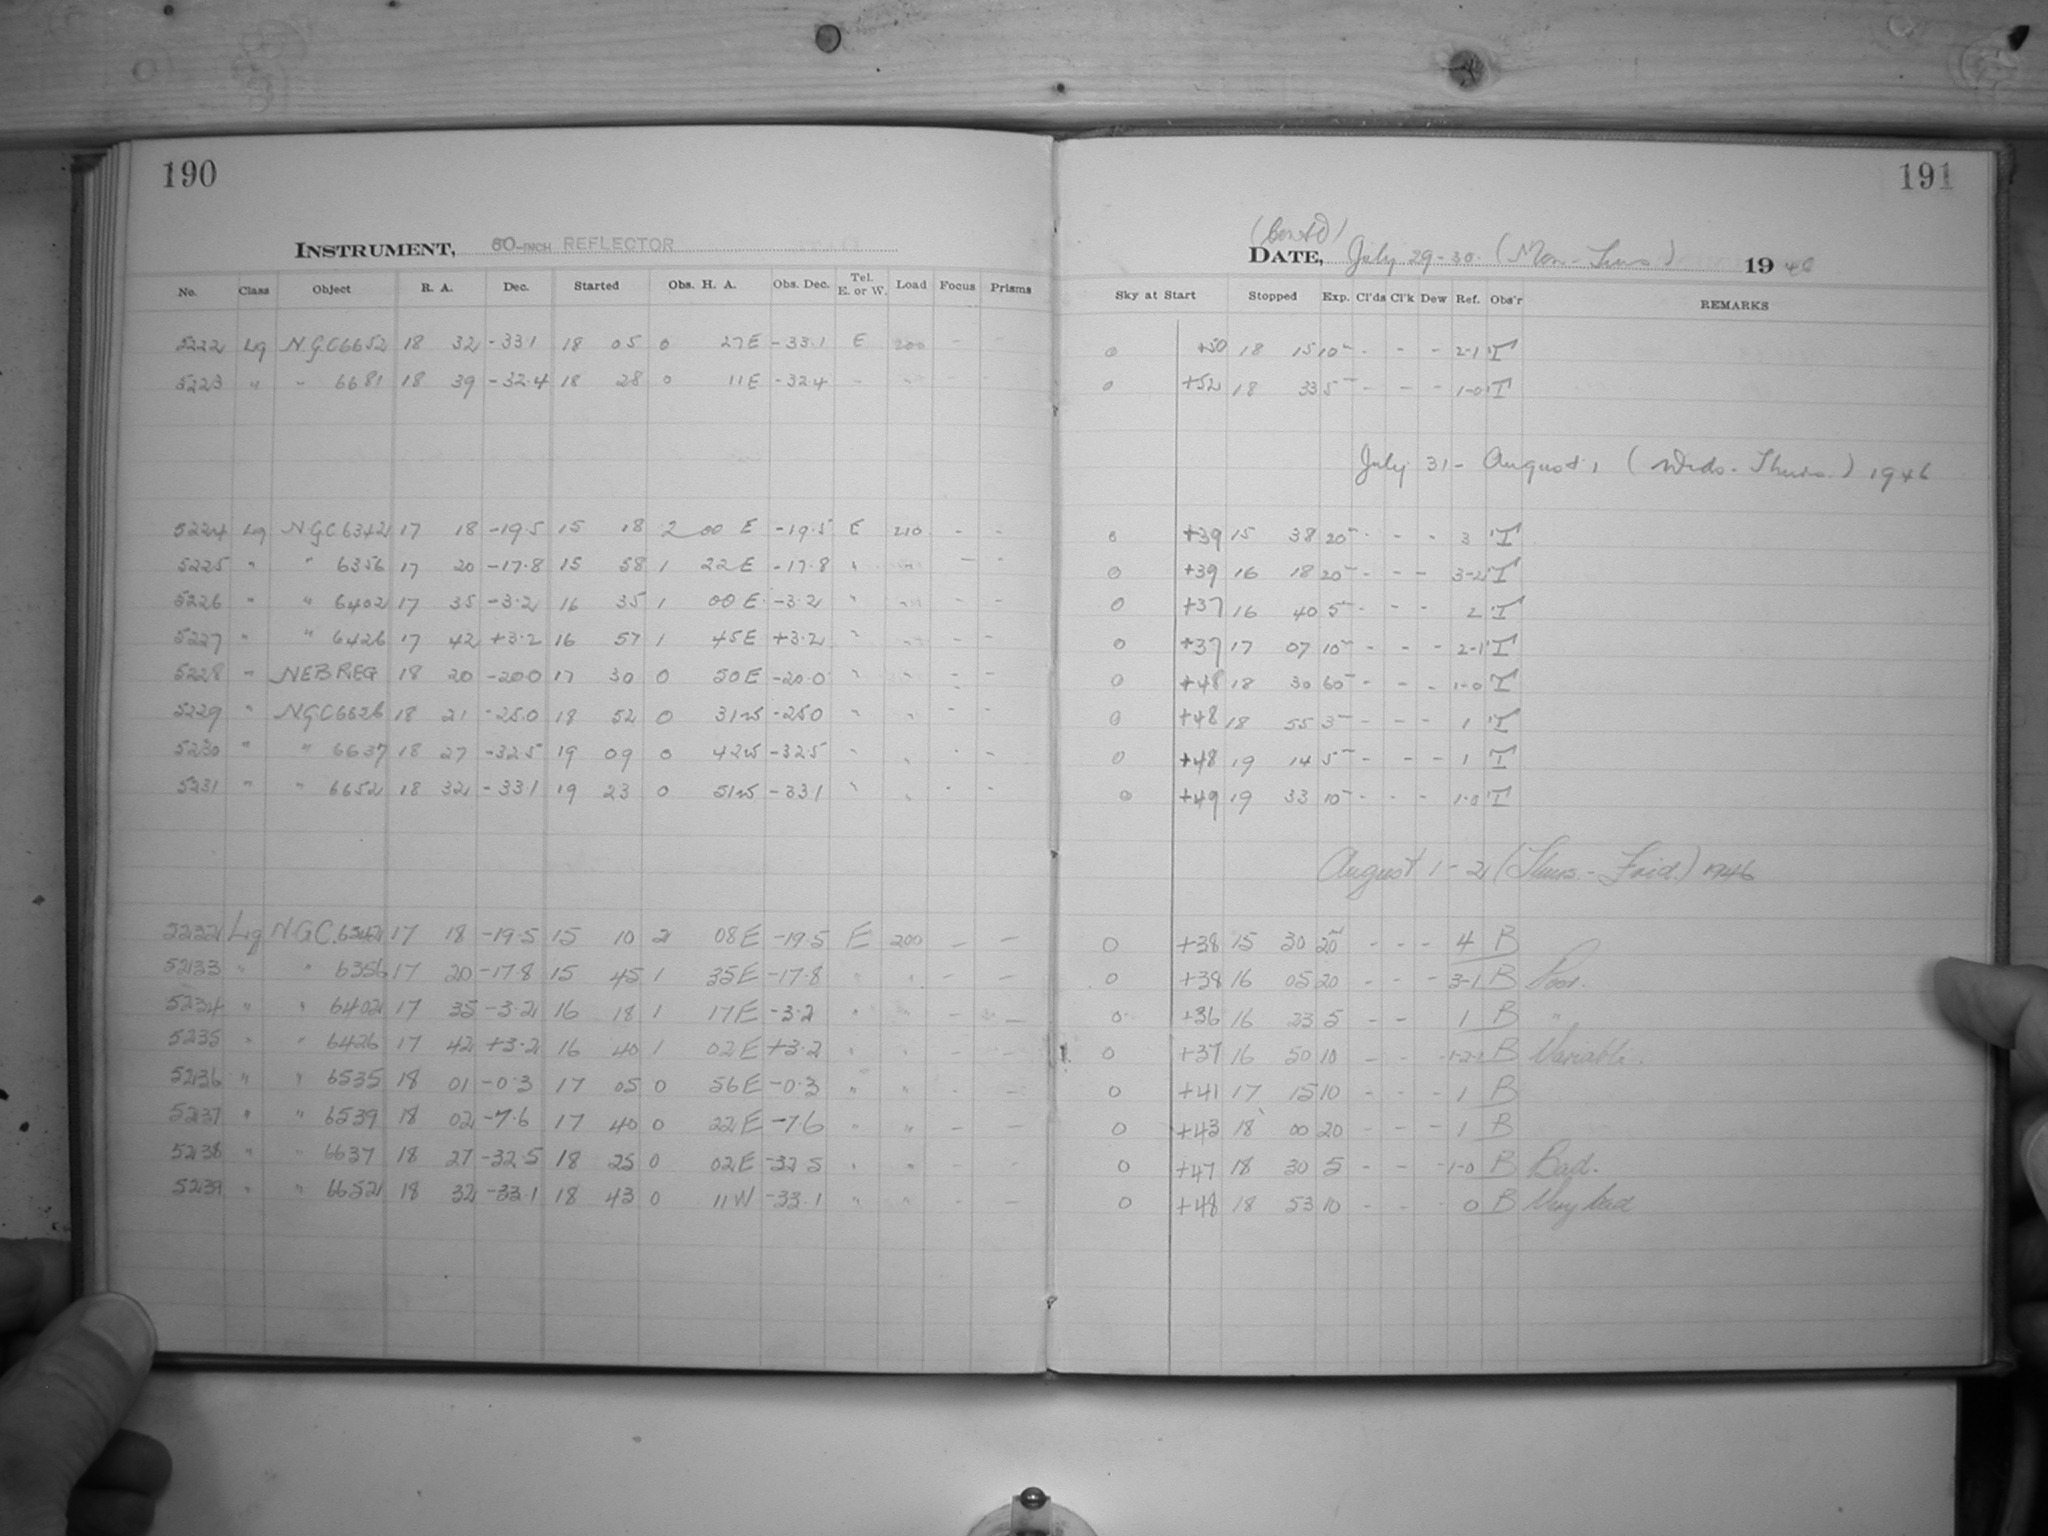 190
INSTRUMENT, 60-INCH REFLECTOR
No. Class Object R. A. Dec. Started Obs. H. A. Obs. Dec. Tel. E. or W. Load Focus Prisms
5222 Lg N.G.C 6652 18 32 -33.1 18 05 0 27 E -33.1 E 200 - -
5223 " " 6681 18 39 -32.4 18 28 0 11 E -32.4 - " - -
5224 Lg N.G.C 6342 17 18 -19.5 15 18 2 00 E -19.5 E 210 - -
5225 " " 6356 17 20 -17.8 15 58 1 22 E -17.8 " " - -
5226 " " 6402 17 35 -3.2 16 35 1 00 E -3.2 " " - -
5227 " " 6426 17 42 +3.2 16 57 1 45 E +3.2 " " - -
5228 " NEB REG 18 20 -20.0 17 30 0 50 E -20.0 " " - -
5229 " NGC 6626 18 21 -25.0 18 52 0 31 W -25.0 " " - -
5230 " " 6637 18 27 -32.5 19 09 0 42 W -32.5 " " - -
5231 " " 6652 18 32 -33.1 19 23 0 51 W -33.1 " " - -
5232 Lg N.G.C. 6342 17 18 -19.5 15 10 2 08 E -19.5 E 200 - -
5233 " " 6356 17 20 -17.8 15 45 1 35 E -17.8 " " - -
5234 " " 6402 17 35 -3.2 16 18 1 17 E -3.2 " " - -
5235 " " 6426 17 42 +3.2 16 40 1 02 E +3.2 " " - -
5236 " " 6535 18 01 -0.3 17 05 0 56 E -0.3 " " - -
5237 " " 6539 18 02 -7.6 17 40 0 22 E -7.6 " " - -
5238 " " 6637 18 27 -32.5 18 25 0 02 E -32.5 " " - -
5239 " " 6652 18 32 -33.1 18 43 0 11 W -33.1 " " - -
191
(Cont'd)
DATE, July 29-30 (Mon - Tues) 1946
Sky at Start Stopped Exp. Cl'ds Cl'k Dew Ref. Obs'r REMARKS
0 +50 18 15 10m - - - 2-1 T
0 +52 18 33 5m - - - 1-0 T
July 31 - August 1 (Weds - Thurs.) 1946
0 +39 15 38 20m - - - 3 T
0 +39 16 18 20m - - - 3-2 T
0 +37 16 40 5m - - - 2 T
0 +37 17 07 10m - - - 2-1 T
0 +48 18 30 60m - - - 1-0 T
0 +48 18 55 3m - - - 1 T
0 +48 19 14 5m - - - 1 T
0 +49 19 33 10m - - - 1-0 T
August 1-2 (Thurs. - Frid.) 1946
0 +38 15 30 20m - - - 4 B
0 +38 16 05 20 - - - 3-1 B Poor.
0 +36 16 23 5 - - 1 B "
0 +37 16 50 10 - - - 1-2-1 B Variable.
0 +41 17 15 10 - - - 1 B
0 +43 18 00 20 - - - 1 B
0 +47 18 30 5 - - - 1-0 B Bad.
0 +48 18 53 10 - - 0 B Very bad